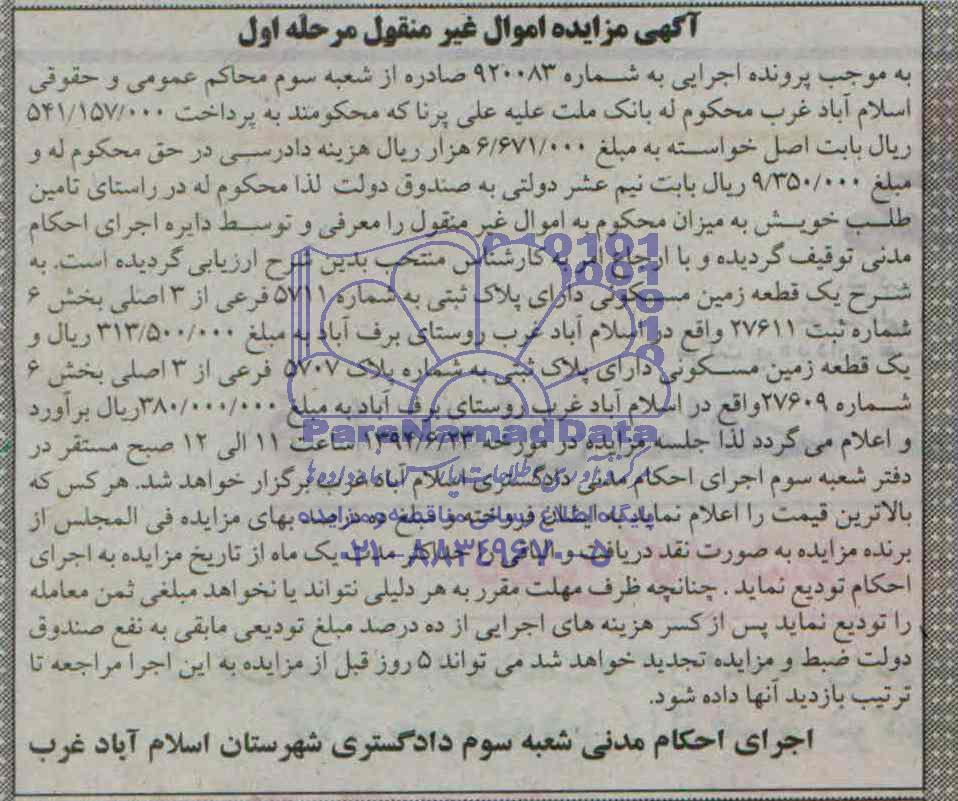 آگهی مزایده اموال غیر منقول مرحله اول
به موجب پرونده اجرایی به شماره ۹۲۰۰۸۳ صادره از شعبه سوم محاکم عمومی و حقوقی
اسلام آباد غرب محکوم له بانک ملت علیه علی پرنا که محکومند به پرداخت ۵۴۱/۱۵۷/۰۰۰
ریال بابت اصل خواسته به مبلغ ۶/۶۷۱/۰۰۰ هزار ریال هزینه دادرسی در حق محکوم له و
مبلغ ۹/۳۵۰/۰۰۰ ریال بابت نیم عشر دولتی به صندوق دولت لذا محکوم له در راستای تامین
طلب خویش به میزان محکوم به اموال غیر منقول را معرفی و توسط دایره اجرای احکام
مدنی توقیف گردیده و با ارجاع امر به کارشناس منتخب بدین شرح ارزیابی گردیده است. به
شرح یک قطعه زمین مسکونی دارای پلاک ثبتی به شماره ۵۷۱۱ فرعی از ۳ اصلی بخش ۶
شماره ثبت ۲۷۶۱۱ واقع در اسلام آباد غرب روستای برف آباد به مبلغ ۳۱۳/۵۰۰/۰۰۰ ریال و
یک قطعه زمین مسکونی دارای پلاک ثبتی به شماره پلاک ۵۷۰۷ فرعی از ۳ اصلی بخش ۶
شماره ۲۷۶۰۹واقع در اسلام آباد غرب روستای برف آباد به مبلغ ۳۸۰/۰۰۰/۰۰۰ریال برآورد
و اعلام می گردد لذا جلسه مزایده در مورخه ۱۳۹۴/۶/۲۳ ساعت ۱۱ الی ۱۲ صبح مستقر در
دفتر شعبه سوم اجرای احکام مدنی دادگستری اسلام آباد غرب برگزار خواهد شد. هر کس که
بالاترین قیمت را اعلام نماید به ایشان فروخته و مبلغ ده درصد بهای مزایده فی المجلس از
برنده مزایده به صورت نقد دریافت و الباقی را حداکثر مدت یک ماه از تاریخ مزایده به اجرای
احکام تودیع نماید . چنانچه ظرف مهلت مقرر به هر دلیلی نتواند یا نخواهد مبلغی ثمن معامله
را تودیع نماید پس از کسر هزینه های اجرایی از ده درصد مبلغ تودیعی مابقی به نفع صندوق
دولت ضبط و مزایده تجدید خواهد شد می تواند ۵ روز قبل از مزایده به این اجرا مراجعه تا
ترتیب بازدید آنها داده شود.
اجرای احکام مدنی شعبه سوم دادگستری شهرستان اسلام آباد غرب
ParsNamadData
پایگاه اطلاع رسانی مناقصه و مزایده
۰۲۱-۸۸۳۴۹۶۷۰-۵